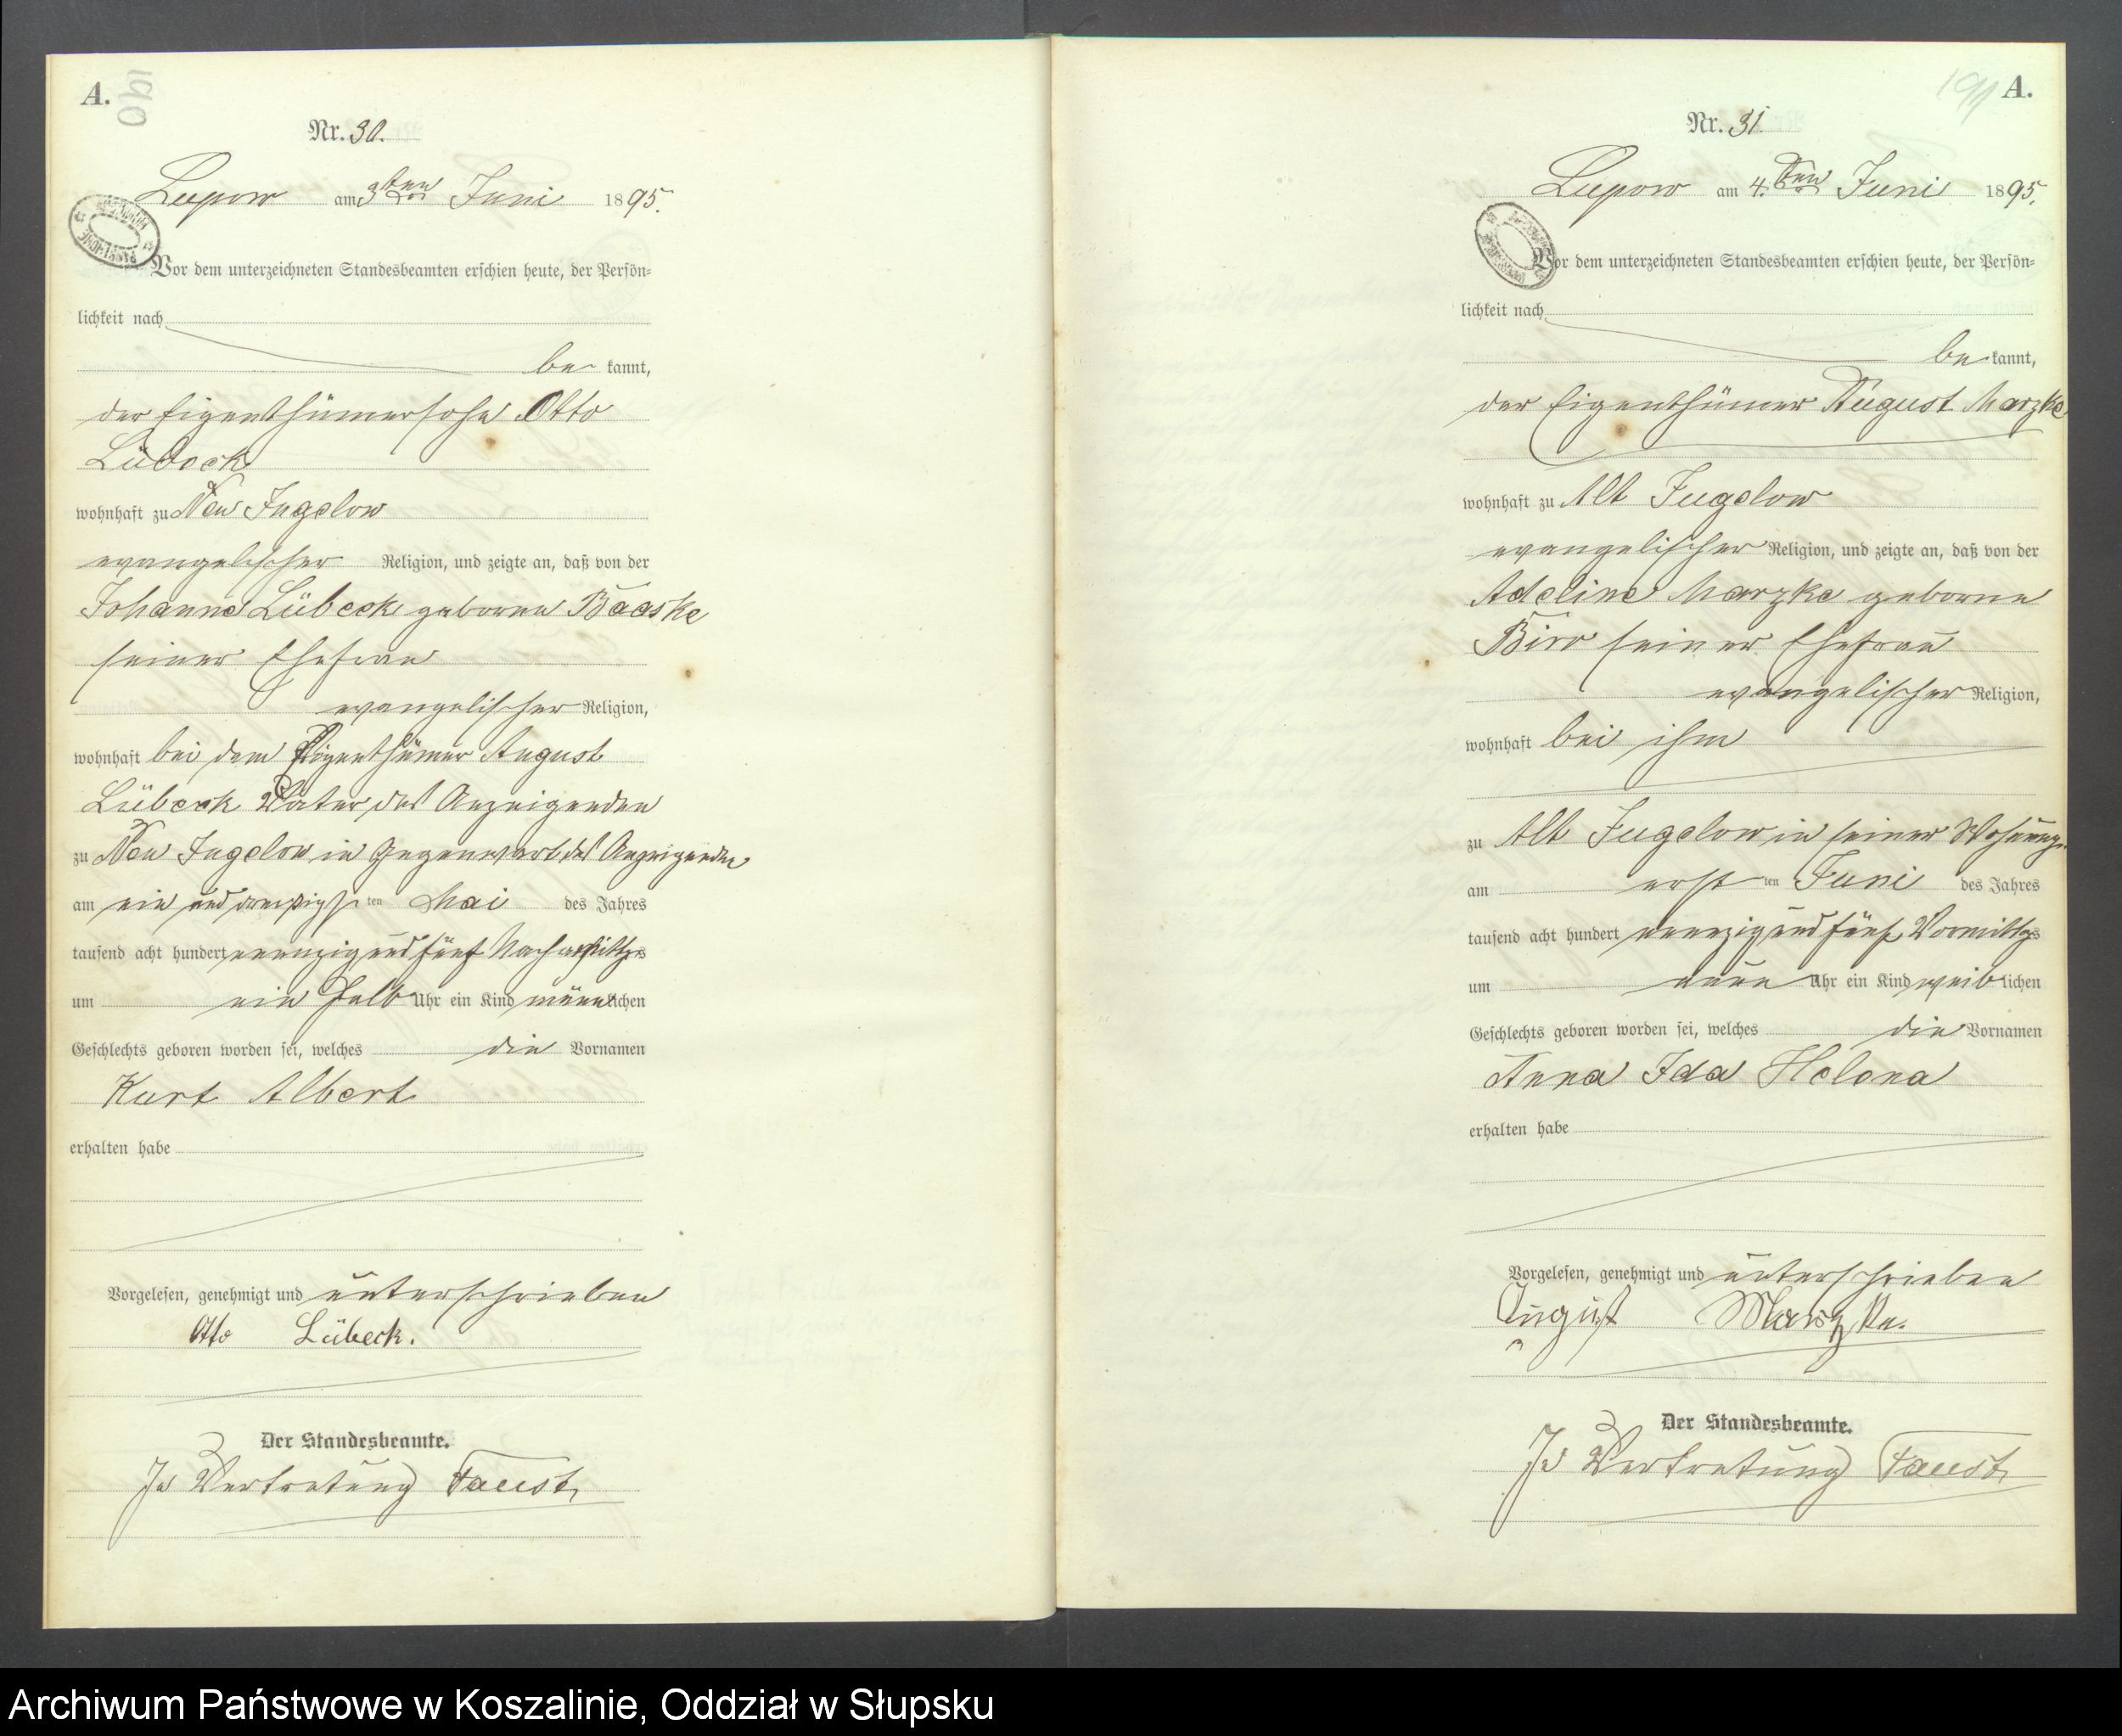 A.
190
Nr. 30.
Lupow am 3ten Juni 1895.
Vor dem unterzeichneten Standesbeamten erschien heute, der Persön=
lichkeit nach
be kannt,
der Eigenthümersohn Otto
Lübeck
wohnhaft zu Neu Jugelow
evangelischer Religion, und zeigte an, daß von der
Johanne Lübeck geborne Baaske
seiner Ehefrau
evangelischer Religion,
wohnhaft bei dem Eigenthümer August
Lübeck Vater des Anzeigenden
zu Neu Jugelow in Gegenwart des Anzeigenden
am ein und dreißigsten Mai des Jahres
tausend acht hundert neunzig und fünf Nachmittgs
um ein halb Uhr ein Kind männlichen
Geschlechts geboren worden sei, welches die Vornamen
Kurt Albert
erhalten habe
Vorgelesen, genehmigt und unterschrieben
Otto Lübeck.
Der Standesbeamte.
In Vertretung Faust
191
A.
Nr. 31.
Lupow am 4ten Juni 1895.
Vor dem unterzeichneten Standesbeamten erschien heute, der Persön=
lichkeit nach
be kannt,
der Eigenthümer August Marzke
wohnhaft zu Alt Jugelow
evangelischer Religion, und zeigte an, daß von der
Adeline Marzke geborne
Biro seiner Ehefrau
evangelischer Religion,
wohnhaft bei ihm
zu Alt Jugelow in seiner Wohnung
am ersten Juni des Jahres
tausend acht hundert neunzig und fünf Vormittgs
um neun Uhr ein Kind weiblichen
Geschlechts geboren worden sei, welches die Vornamen
Anna Ida Helena
erhalten habe
Vorgelesen, genehmigt und unterschrieben
August Marzke.
Der Standesbeamte.
In Vertretung Faust
Archiwum Państwowe w Koszalinie, Oddział w Słupsku